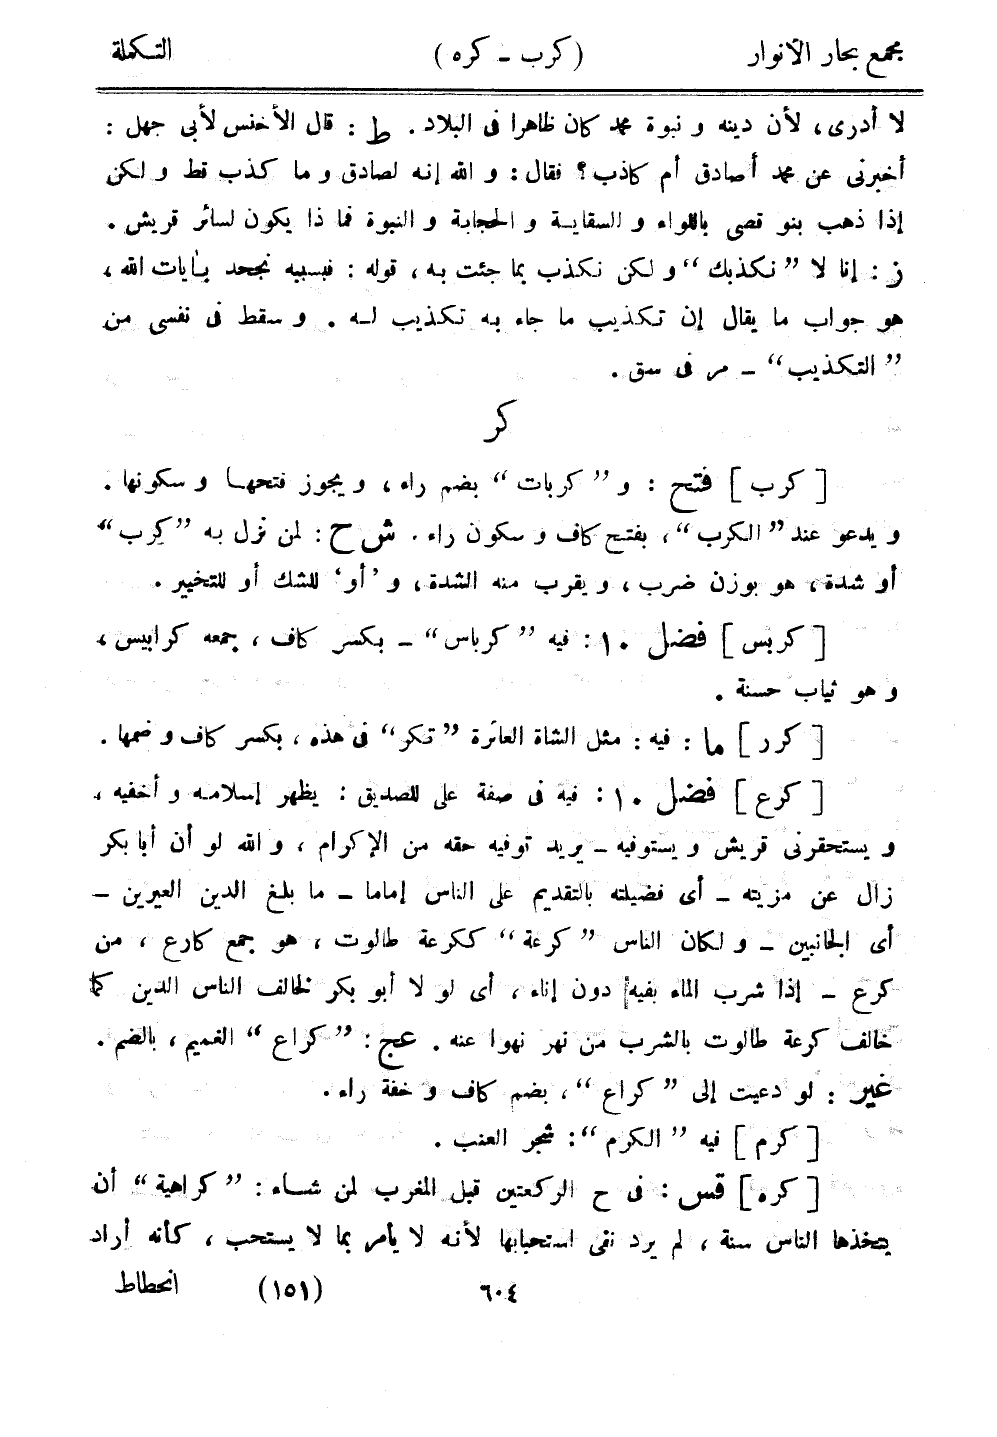 مجمع بحار الأنوار (كرب - كره) التكملة
لا أدرى، لأن دينه و نبوة محمد كان ظاهرا فى البلاد. ط: قال الأخنس لأبى جهل:
أخبرنى عن محمد أصادق أم كاذب؟ فقال: و الله إنه لصادق و ما كذب قط و لكن
إذا ذهب بنو قصى باللواء و السقاية و الحجابة و النبوة فما ذا يكون لسائر قريش.
ز: إنا لا ”نكذبك“ و لكن نكذب بما جئت به، قوله: فبسببه نجحد بآيات الله،
هو جواب ما يقال إن تكذيب ما جاء به تكذيب له. و سقط فى نفسى من
”التكذيب“ - مر فى سق.
كر
[كرب] فتح: و ”كربات“ بضم راء، و يجوز فتحها و سكونها.
و يدعو عند ”الكرب“، بفتح كاف و سكون راء. ش ح: لمن نزل به ”كرب“
أو شدة، هو بوزن ضرب، و يقرب منه الشدة، و ’أو‘ للشك أو للتخيير.
[كربس] فضل ١٠: فيه ”كرباس“ - بكسر كاف، جمعه كرابيس،
و هو ثياب حسنة.
[كرر] ما: فيه: مثل الشاة العائرة ”تكر“ فى هذه، بكسر كاف و ضمها.
[كرع] فضل ١٠: فيه فى صفة على للصديق: يظهر إسلامه و أخفيه،
و يستحقرنى قريش و يستوفيه - يريد توفيه حقه من الإكرام، و الله لو أن أبا بكر
زال عن مزيته - أى فضيلته بالتقديم على الناس إماما - ما بلغ الدين العبرين -
أى الجانبين - و لكان الناس ”كرعة“ ككرعة طالوت، هو جمع كارع، من
كرع - إذا شرب الماء بفيه دون إناء، أى لو لا أبو بكر لخالف الناس الدين كما
خالف كرعة طالوت بالشرب من نهر نهوا عنه. عج: ”كراع“ الغميم، بالضم.
غير: لو دعيت إلى ”كراع“، بضم كاف و خفة راء.
[كرم] فيه ”الكرم“: شجر العنب.
[كره] قس: فى ح الركعتين قبل المغرب لمن شاء: ”كراهية“ أن
يتخذها الناس سنة، لم يرد نفى استحبابها لأنه لا يأمر بما لا يستحب، كأنه أراد
٦٠٤ (١٥١) انحطاط